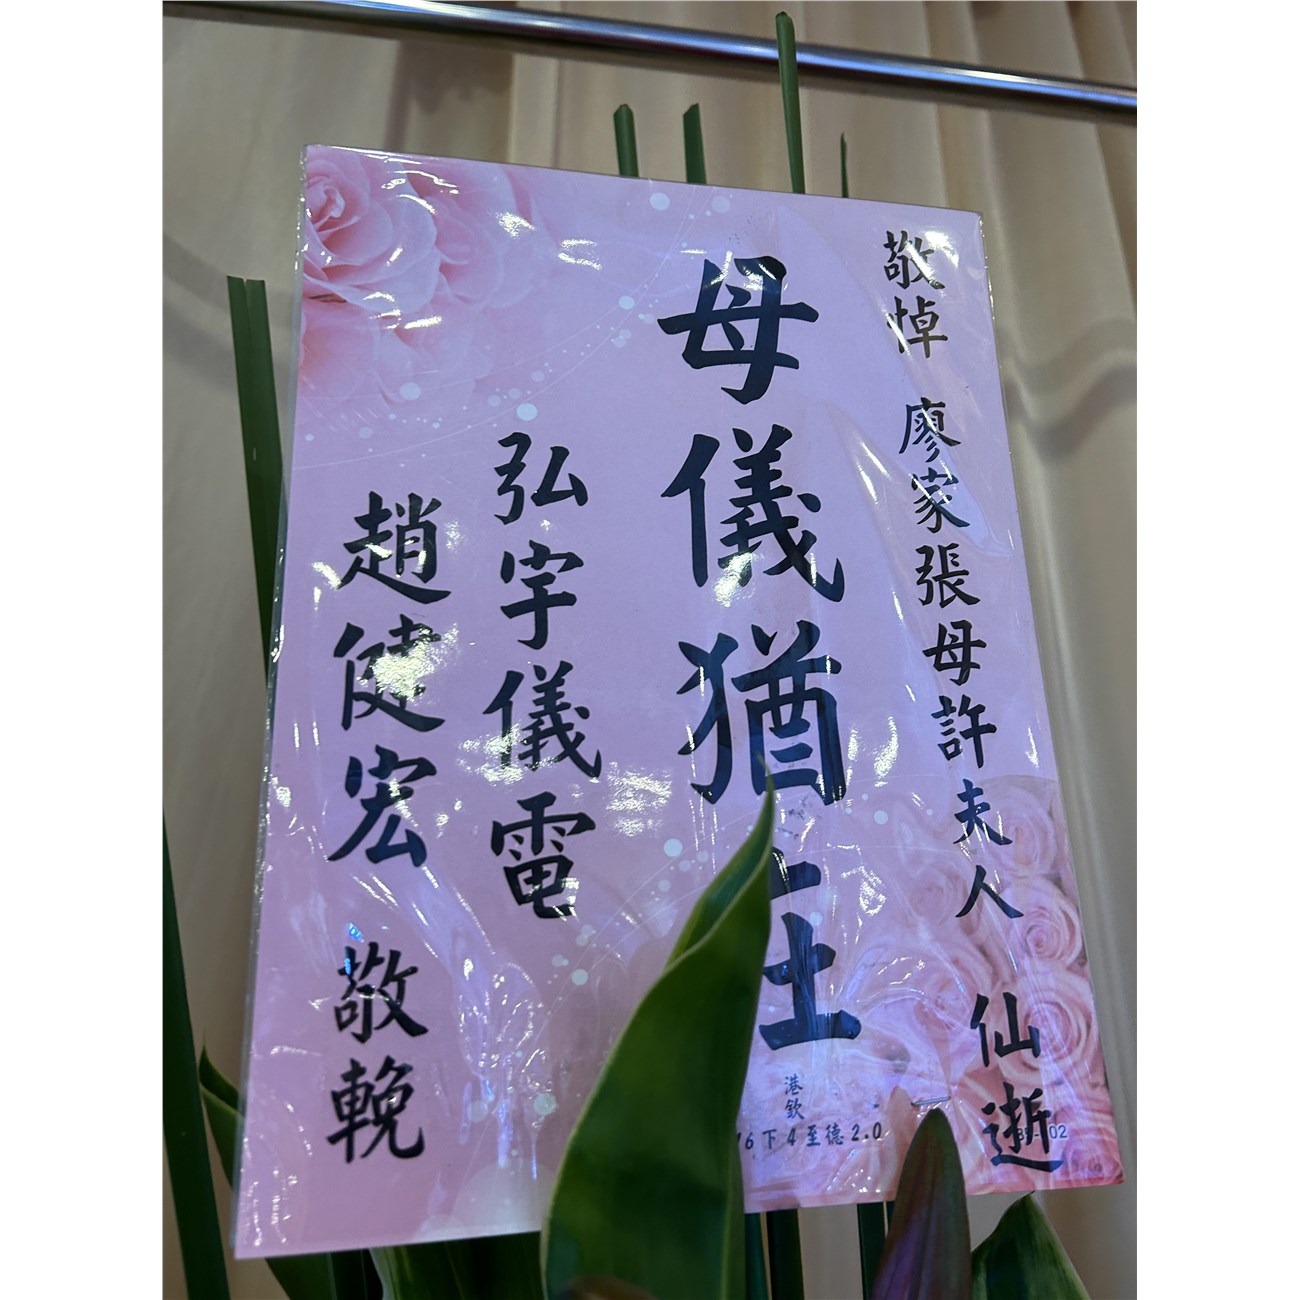 敬悼 廖家張母許夫人 仙逝
母儀猶在
弘宇儀電
趙健宏 敬輓
港欽
16下4至德2.0